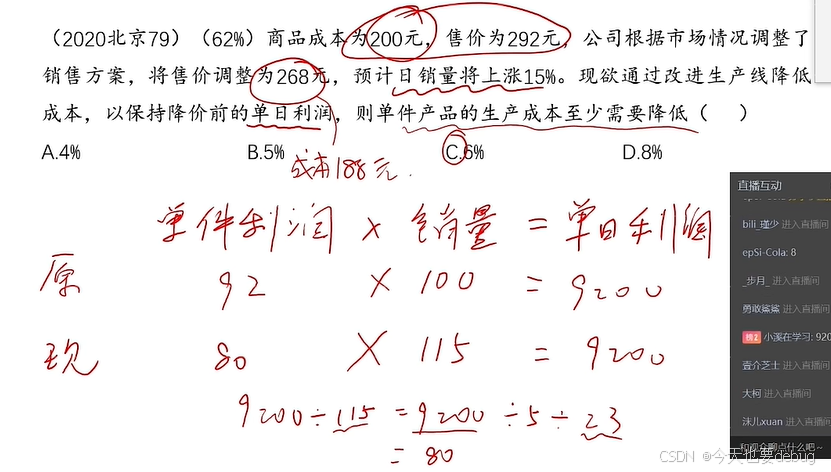 （2020北京79）（62%）商品成本为200元，售价为292元，公司根据市场情况调整了
销售方案，将售价调整为268元，预计日销量将上涨15%。现欲通过改进生产线降低
成本，以保持降价前的单日利润，则单件产品的生产成本至少需要降低（ ）
A.4% B.5% C.6% D.8%
成本188元.
单件利润 × 销量 = 单日利润
原 92 × 100 = 9200
现 80 × 115 = 9200
9200÷115 = 9200 ÷5÷23
= 80
直播互动
bili_瑾少 进入直播间
epSi-Cola: 8
_步月_ 进入直播间
勇敢鲨鲨 进入直播间
小溪在学习: 920
壹介芝士 进入直播间
大柯 进入直播间
沫儿xuan 进入直播间
和观众聊点什么吧~
CSDN @今天也要debug